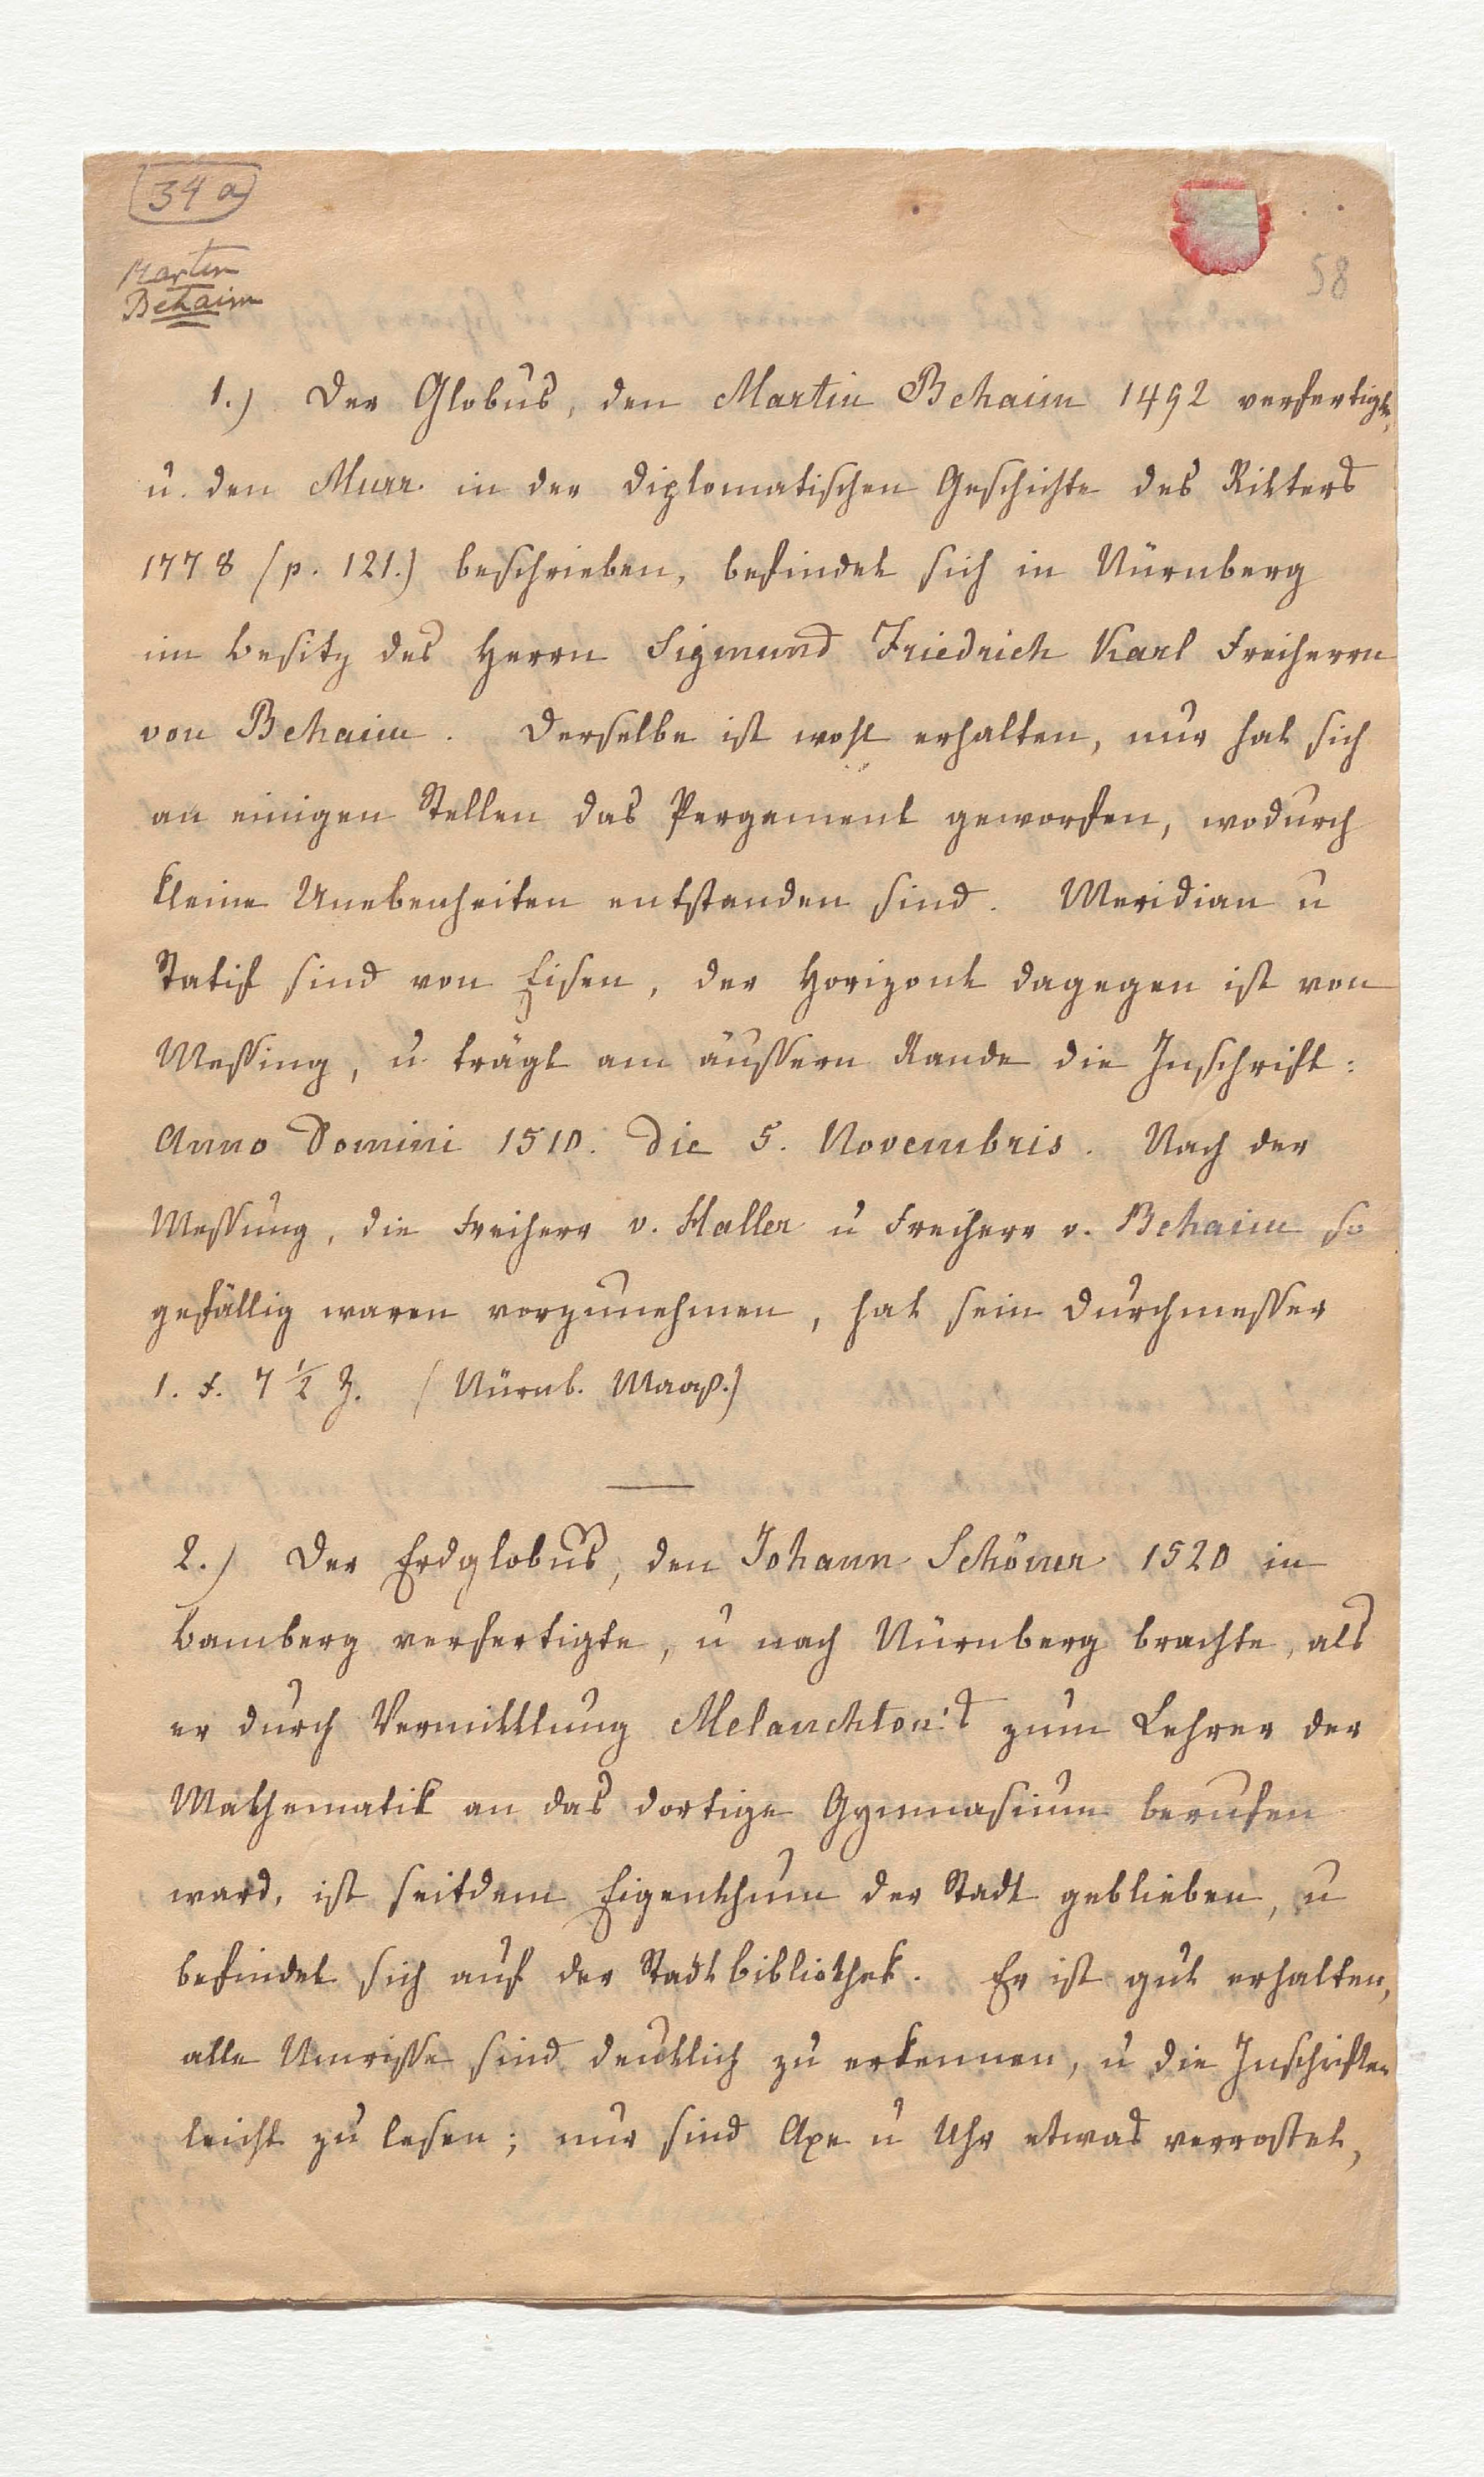 34 a
Martin
Behaim
58
1.) Der Globus, den Martin Behaim 1492 verfertigte,
u. den Murr. in der diplomatischen Geschichte des Ritters
1778 (p. 121.) beschrieben, befindet sich in Nürnberg
im Besitz des Herrn Sigmund Friedrich Karl Freiherrn
von Behaim. Derselbe ist wohl erhalten, nur hat sich
an einigen Stellen das Pergament geworfen, wodurch
kleine Unebenheiten entstanden sind. Meridian u
Statif sind von Eisen, der Horizont dagegen ist von
Messing, u trägt am äussern Rande die Inschrift:
Anno Domini 1510. die 5. Novembris. Nach der
Messung, die Freiherr v. Haller u Freiherr v. Behaim so
gefällig waren vorzunehmen, hat sein Durchmesser
1. F. 7 1/2 Z. (Nürnb. Maaß.)
2.) Der Erdglobus, den Johann Schöner 1520 in
Bamberg verfertigte, u nach Nürnberg brachte, als
er durch Vermittlung Melanchton's zum Lehrer der
Mathematik an das dortige Gymnasium berufen
ward, ist seitdem Eigenthum der Stadt geblieben, u
befindet sich auf der Stadtbibliothek. Er ist gut erhalten,
alle Umrisse sind deutlich zu erkennen, u die Inschriften
leicht zu lesen; nur sind Axe u Uhr etwas verrostet,